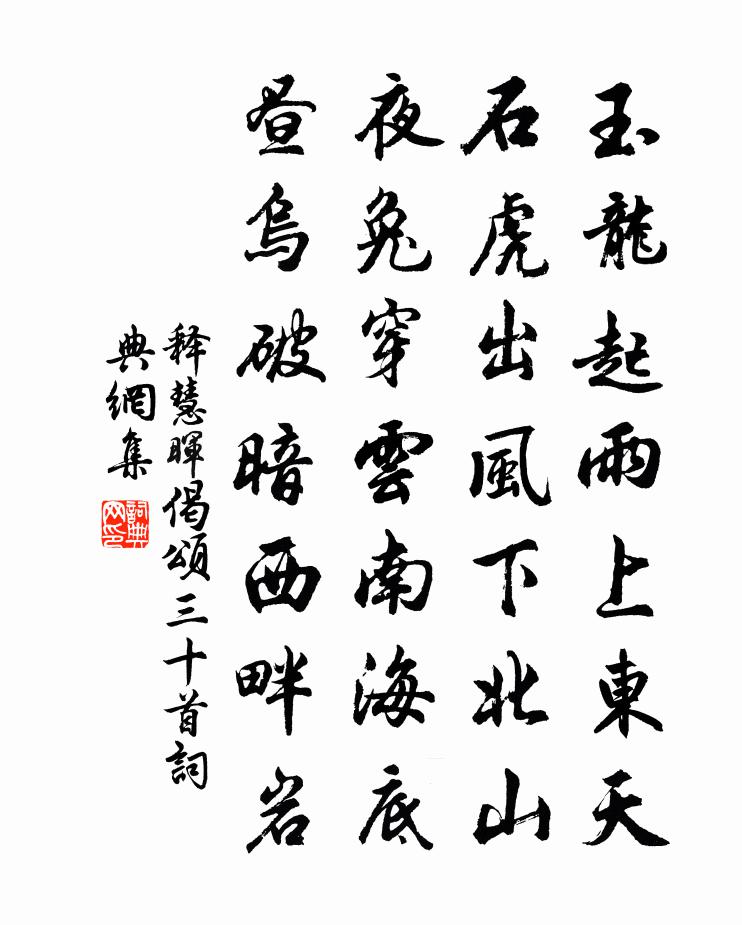 玉龍起雨上東天
石虎出風下北山
夜兔穿雲南海底
昼烏破暗西畔岩
释慧暉偈頌三十首詞
典網集
詞典
网印